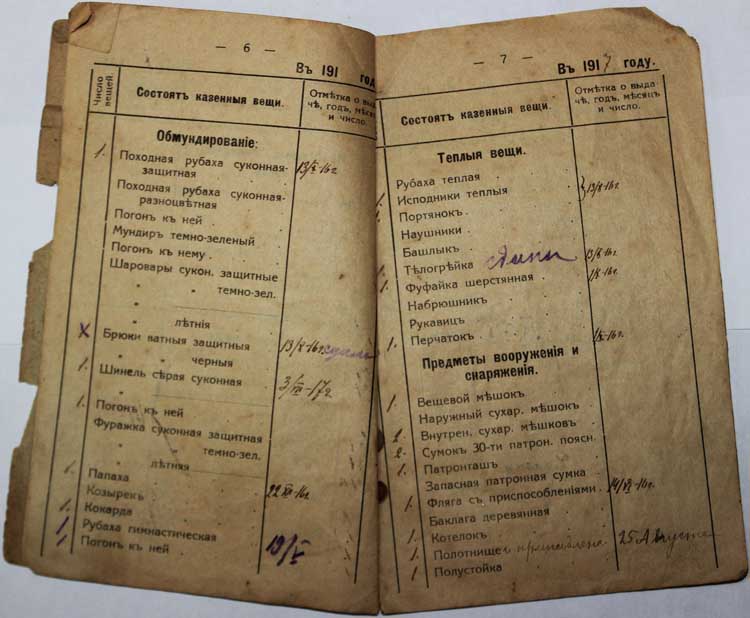 — 6 —
Въ 191 год
Число вещей.
Состоятъ казенныя вещи.
Отмѣтка о выда
чѣ, годъ, мѣсяцъ
и число.
Обмундированіе:
1. Походная рубаха суконная- 13/X-16 г.
защитная
Походная рубаха суконная-
разноцвѣтная
Погонъ къ ней
Мундиръ темно-зеленый
Погонъ къ нему
Шаровары сукон. защитные
" " темно-зел.
" лѣтнія
х Брюки ватныя защитныя 13/X-16 г.
" " черныя
1. Шинель сѣрая суконная
1. Погонъ къ ней
Фуражка суконная защитная
" " темно-зел.
" лѣтняя
1. Папаха
1. Козырекъ
1. Кокарда
1 Рубаха гимнастическая
1 Погонъ къ ней 19/V
— 7 —
Въ 1917 году.
Состоятъ казенныя вещи.
Отмѣтка о выда
чѣ, годъ, мѣсяцъ
и число.
Теплыя вещи.
Рубаха теплая
1. Исподники теплыя 13/X-16 г.
1. Портянокъ
Наушники
Башлыкъ
1. Тѣлогрѣйка сдани 13/X-16 г.
1. Фуфайка шерстянная
Набрюшник
Рукавиц
1. Перчатокъ
Предметы вооруженія и
снаряженія.
1. Вещевой мѣшокъ
Наружный сухар. мѣшокъ
2. Внутрен. сухар. мѣшковъ
2. Сумокъ 30-ти патрон. поясн.
1. Патронташъ
Запасная патронная сумка
1. Фляга съ приспособленіями
Баклага деревянная
1. Котелокъ
1. Полотнище 25 Августа
1. Полустойка